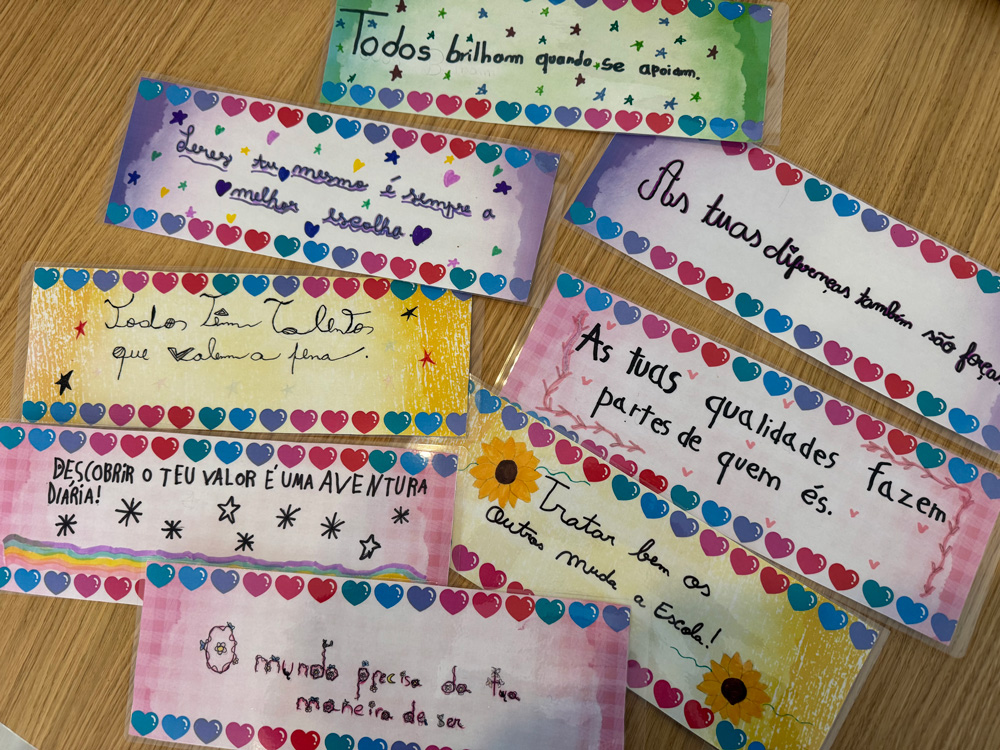 Todos brilham quando se apoiam.
Seres tu mesmo é sempre a
melhor escolha
As tuas diferenças também são forças
Todos Têm Talentos
que valem a pena.
As tuas qualidades fazem
partes de quem és.
DESCOBRIR O TEU VALOR É UMA AVENTURA
DIÁRIA!
Tratar bem os
Outros muda a Escola!
O mundo precisa da tua
maneira de ser